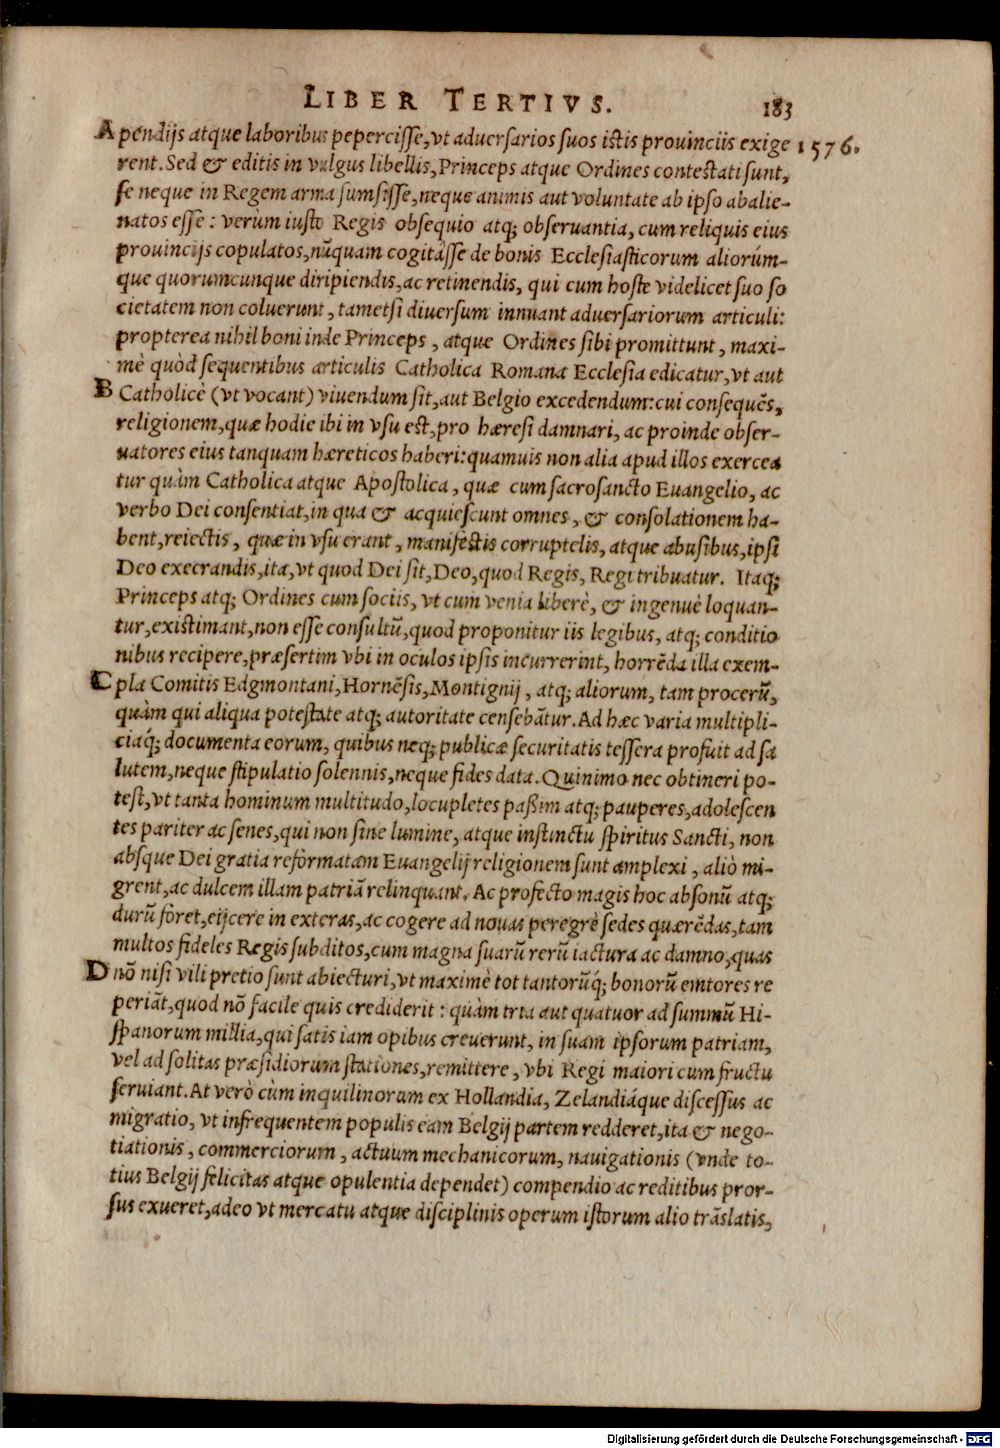 LIBER TERTIVS. 183
A pendijs atque laboribus pepercisse, vt aduersarios suos istis prouinciis exige 1576.
rent. Sed & editis in vulgus libellis, Princeps atque Ordines contestati sunt,
se neque in Regem arma sumsisse, neque animis aut voluntate ab ipso abalie-
natos esse: verùm iusto Regis obsequio atq; obseruantia, cum reliquis eius
prouincijs copulatos, nũquam cogitâsse de bonis Ecclesiasticorum aliorúm-
que quorumcunque diripiendis, ac retinendis, qui cum hoste videlicet suo so
cietatem non coluerunt, tametsi diuersum innuant aduersariorum articuli:
propterea nihil boni inde Princeps, atque Ordines sibi promittunt, maxi-
mè quòd sequentibus articulis Catholica Romana Ecclesia edicatur, vt aut
B Catholicè (vt vocant) viuendum sit, aut Belgio excedendum: cui consequẽs,
religionem, quæ hodie ibi in vsu est, pro hæresi damnari, ac proinde obser-
uatores eius tanquam hæreticos haberi: quamuis non alia apud illos exercea
tur quàm Catholica atque Apostolica, quæ cum sacrosancto Euangelio, ac
verbo Dei consentiat, in qua & acquiescunt omnes, & consolationem ha-
bent, reiectis, quæ in vsu erant, manifestis corruptelis, atque abusibus, ipsi
Deo execrandis, ita, vt quod Dei sit, Deo, quod Regis, Regi tribuatur. Itaq;
Princeps atq; Ordines cum sociis, vt cum venia liberè, & ingenuè loquan-
tur, existimant, non esse consultũ, quod proponitur iis legibus, atq; conditio
nibus recipere, præsertim vbi in oculos ipsis incurrerint, horrẽda illa exem-
C pla Comitis Edgmontani, Hornẽsis, Montignij, atq; aliorum, tam procerũ,
quàm qui aliqua potestate atq; autoritate censebãtur. Ad hæc varia multipli-
ciaq́; documenta eorum, quibus neq; publicæ securitatis tessera profuit ad sa
lutem, neque stipulatio solennis, neque fides data. Quinimo nec obtineri po-
test, vt tanta hominum multitudo, locupletes paßim atq; pauperes, adolescen
tes pariter ac senes, qui non sine lumine, atque instinctu spiritus Sancti, non
absque Dei gratia reformatam Euangelij religionem sunt amplexi, aliò mi-
grent, ac dulcem illam patriã relinquant. Ac profecto magis hoc absonũ atq;
durũ foret, eijcere in exteras, ac cogere ad nouas peregrè sedes quærẽdas, tam
multos fideles Regis subditos, cum magna suarũ rerũ iactura ac damno, quas
D nõ nisi vili pretio sunt abiecturi, vt maximè tot tantorũq́; bonorũ emtores re
periãt, quod nõ facile quis crediderit: quàm tria aut quatuor ad summũ Hi-
spanorum millia, qui satis iam opibus creuerunt, in suam ipsorum patriam,
vel ad solitas præsidiorum stationes, remittere, vbi Regi maiori cum fructu
seruiant. At verò cùm inquilinorum ex Hollandia, Zelandiáque discessus ac
migratio, vt infrequentem populis eam Belgij partem redderet, ita & nego-
tiationis, commerciorum, actuum mechanicorum, nauigationis (vnde to-
tius Belgij felicitas atque opulentia dependet) compendio ac reditibus pror-
sus exueret, adeo vt mercatu atque disciplinis operum istorum alio trãslatis,
Digitalisierung gefördert durch die Deutsche Forschungsgemeinschaft - DFG